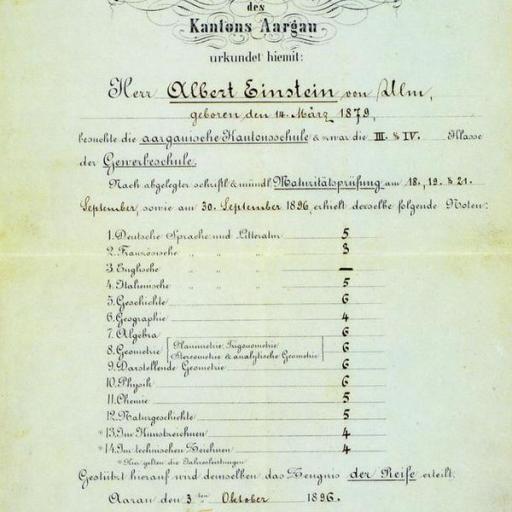 des
Kantons Aargau
urkundet hiemit:
Herr Albert Einstein von Ulm,
geboren den 14. März 1879,
besuchte die aargauische Kantonsschule & zwar die III. & IV. Klasse
der Gewerbeschule.
Nach abgelegter schriftl. & mündl. Maturitätsprüfung am 18., 19. & 21.
September, sowie am 30. September 1896, erhielt derselbe folgende Noten:
1. Deutsche Sprache und Litteratur 5
2. Französische " " " 3
3. Englische " " " —
4. Italienische " " " 5
5. Geschichte 6
6. Geographie 4
7. Algebra 6
8. Geometrie Planimetrie, Trigonometrie 6
Stereometrie & analytische Geometrie
9. Darstellende Geometrie 6
10. Physik 6
11. Chemie 5
12. Naturgeschichte 5
* 13. Im Kunstzeichnen 4
* 14. Im technischen Zeichnen 4
* Hier gelten die Jahresleistungen
Gestützt hierauf wird demselben das Zeugnis der Reife erteilt.
Aarau den 3ten Oktober 1896.